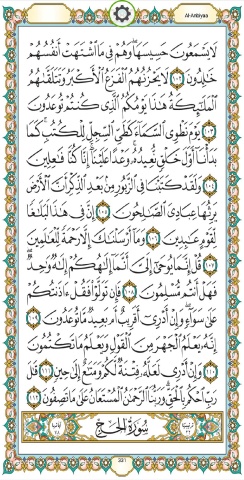 Al-Anbiyaa
لَا يَسْمَعُونَ حَسِيسَهَا وَهُمْ فِي مَا اشْتَهَتْ أَنْفُسُهُمْ
خَالِدُونَ ١٠٢ لَا يَحْزُنُهُمُ الْفَزَعُ الْأَكْبَرُ وَتَتَلَقَّاهُمُ
الْمَلَائِكَةُ هَٰذَا يَوْمُكُمُ الَّذِي كُنْتُمْ تُوعَدُونَ
١٠٣ يَوْمَ نَطْوِي السَّمَاءَ كَطَيِّ السِّجِلِّ لِلْكُتُبِ كَمَا
بَدَأْنَا أَوَّلَ خَلْقٍ نُعِيدُهُ وَعْدًا عَلَيْنَا إِنَّا كُنَّا فَاعِلِينَ
١٠٤ وَلَقَدْ كَتَبْنَا فِي الزَّبُورِ مِنْ بَعْدِ الذِّكْرِ أَنَّ الْأَرْضَ
يَرِثُهَا عِبَادِيَ الصَّالِحُونَ ١٠٥ إِنَّ فِي هَٰذَا لَبَلَاغًا
لِقَوْمٍ عَابِدِينَ ١٠٦ وَمَا أَرْسَلْنَاكَ إِلَّا رَحْمَةً لِلْعَالَمِينَ
١٠٧ قُلْ إِنَّمَا يُوحَىٰ إِلَيَّ أَنَّمَا إِلَٰهُكُمْ إِلَٰهٌ وَاحِدٌ
فَهَلْ أَنْتُمْ مُسْلِمُونَ ١٠٨ فَإِنْ تَوَلَّوْا فَقُلْ آذَنْتُكُمْ
عَلَىٰ سَوَاءٍ وَإِنْ أَدْرِي أَقَرِيبٌ أَمْ بَعِيدٌ مَا تُوعَدُونَ ١٠٩
إِنَّهُ يَعْلَمُ الْجَهْرَ مِنَ الْقَوْلِ وَيَعْلَمُ مَا تَكْتُمُونَ
١١٠ وَإِنْ أَدْرِي لَعَلَّهُ فِتْنَةٌ لَكُمْ وَمَتَاعٌ إِلَىٰ حِينٍ ١١١ قَالَ
رَبِّ احْكُمْ بِالْحَقِّ وَرَبُّنَا الرَّحْمَٰنُ الْمُسْتَعَانُ عَلَىٰ مَا تَصِفُونَ ١١٢
سُورَةُ الْحَجِّ
331